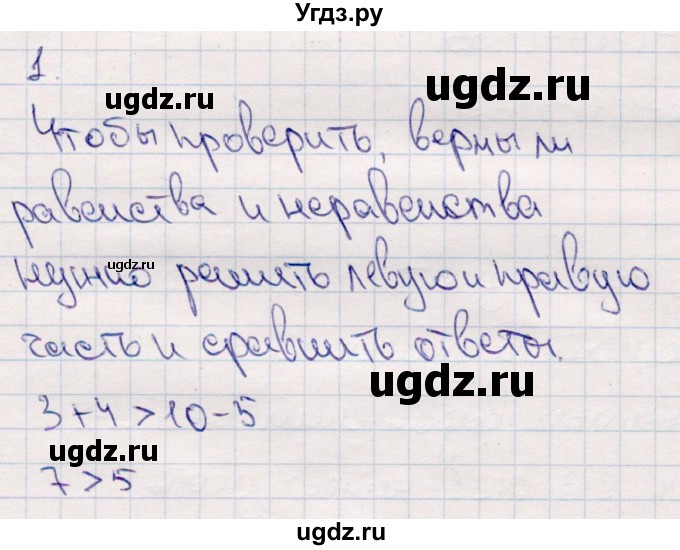 Угдз.ру
1.
ugdz.ru
ugdz.ru
Чтобы проверить, верны ли
равенства и неравенства
ugdz.ru
нужно решить левую и правую
часть и сравнить ответы.
ugdz.ru
3+4>10-5
7>5
ugdz.ru